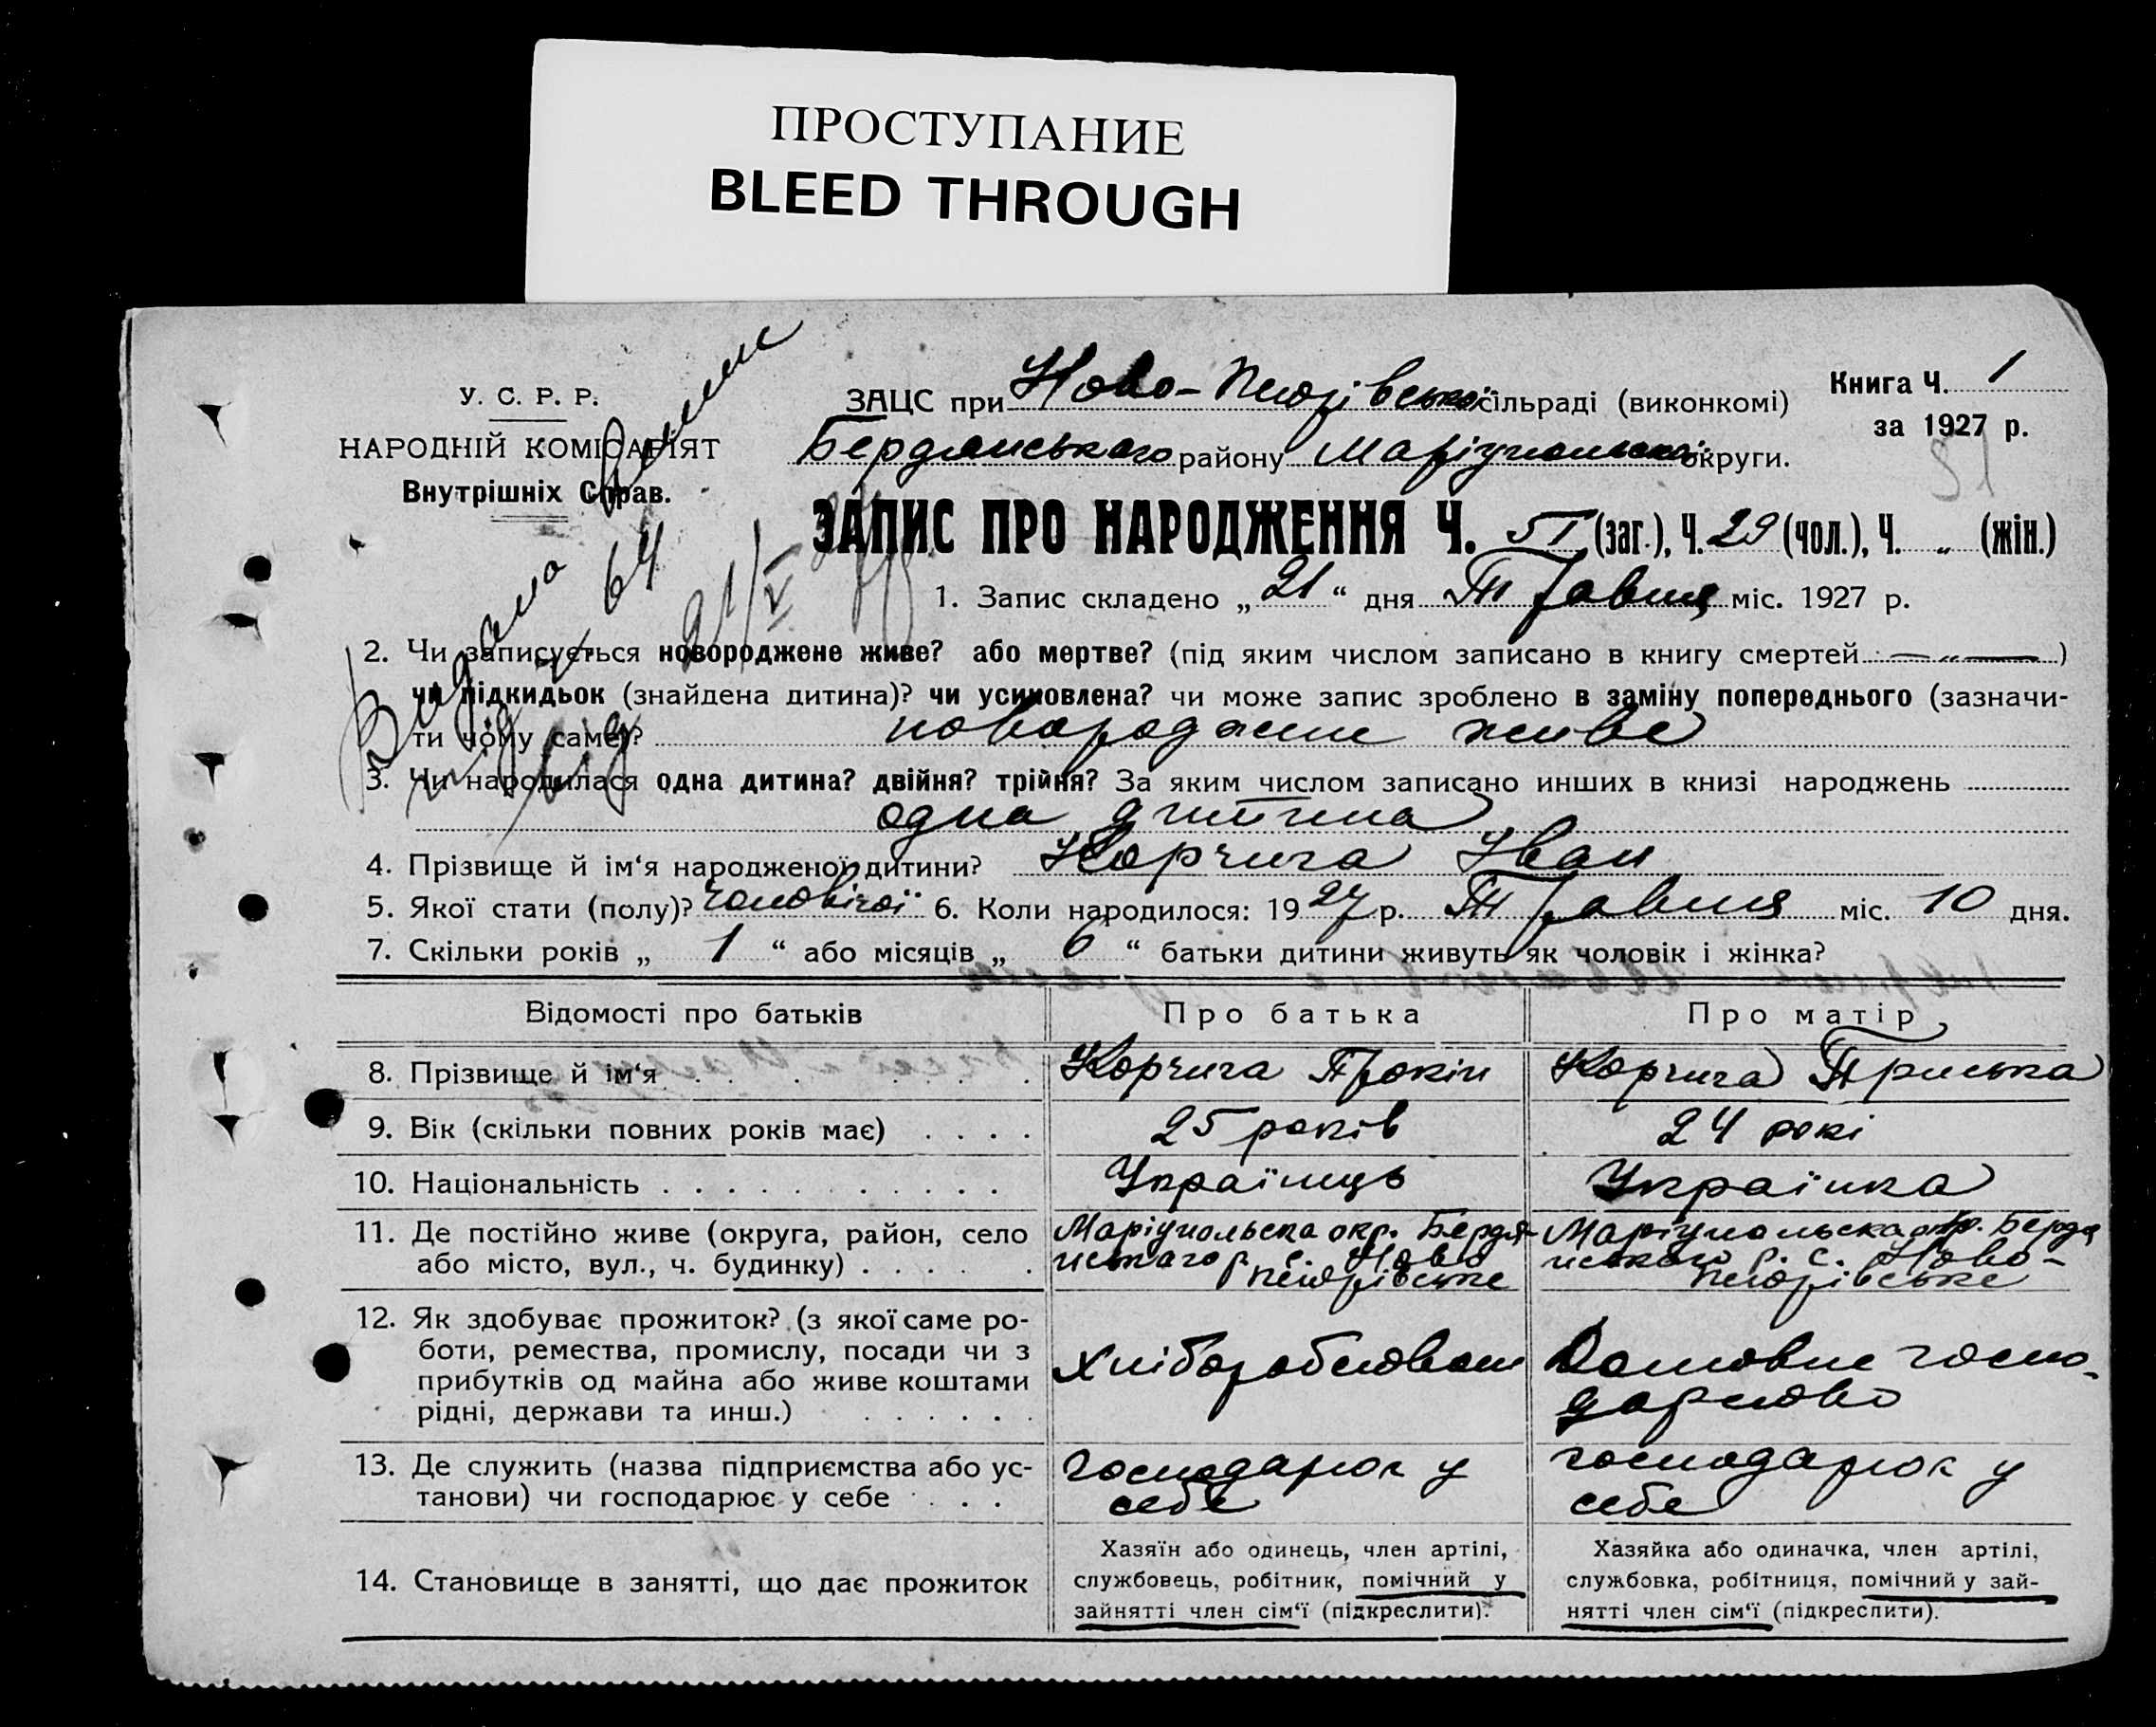 ПРОСТУПАНИЕ
BLEED THROUGH
У. С. Р. Р.
НАРОДНІЙ КОМІСАРІЯТ
Внутрішніх Справ.
ЗАЦС при Ново-Петрівській сільраді (виконкомі)
Бердянського району Маріупольської округи.
Книга Ч. 1
за 1927 р.
51
ЗАПИС ПРО НАРОДЖЕННЯ Ч. 51 (заг.), Ч. 29 (чол.), Ч. „ (жін.)
Видана
64
21/V 27
1. Запис складено „21“ дня Травня міс. 1927 р.
2. Чи записується новороджене живе? або мертве? (під яким числом записано в книгу смертей — „ —)
чи підкидьок (знайдена дитина)? чи усиновлена? чи може запис зроблено в заміну попереднього (зазначи-
ти чому саме)? новороджене живе
3. Чи народилася одна дитина? двійня? трійня? За яким числом записано инших в книзі народжень
одна дитина
4. Прізвище й ім‘я народженої дитини? Корчига Іван
5. Якої стати (полу)? чоловічої 6. Коли народилося: 1927 р. Травня міс. 10 дня.
7. Скільки років „ 1 “ або місяців „ 6 “ батьки дитини живуть як чоловік і жінка?
Відомості про батьків
Про батька
Про матір
8. Прізвище й ім‘я
Корчига Прокіп
Корчига Приська
9. Вік (скільки повних років має)
25 років
24 рокі
10. Національність
Українць
Українка
11. Де постійно живе (округа, район, село
або місто, вул., ч. будинку)
Маріупольска окр. Бердя-
нського р. с. Ново
Петрівське
Маріупольска окр. Бердя
нського р. с. Ново-
Петрівське
12. Як здобуває прожиток? (з якої саме ро-
боти, ремества, промислу, посади чи з
прибутків од майна або живе коштами
рідні, держави та инш.)
Хліборобством
Домовне госпо-
дарство
13. Де служить (назва підприємства або ус-
танови) чи господарює у себе
господарює у
себе
господарює у
себе
14. Становище в занятті, що дає прожиток
Хазяїн або одинець, член артілі,
службовець, робітник, помічний у
зайнятті член сім‘ї (підкреслити).
Хазяйка або одиначка, член артілі,
службовка, робітниця, помічний у зай-
нятті член сім‘ї (підкреслити).